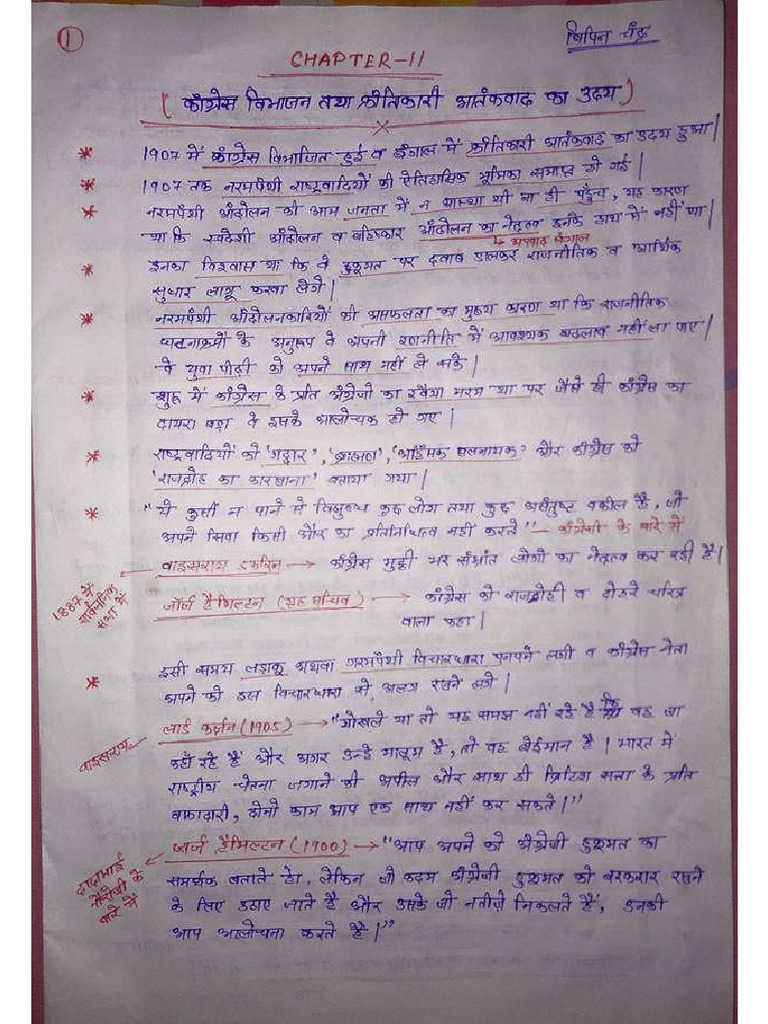 1
बिपिन चंद्र
CHAPTER-11
( कांग्रेस विभाजन तथा क्रांतिकारी आतंकवाद का उदय )
* 1907 में कांग्रेस विभाजित हुई व बंगाल में क्रांतिकारी आतंकवाद का उदय हुआ |
* 1907 तक नरमपंथी राष्ट्रवादियों की ऐतिहासिक भूमिका समाप्त हो गई |
* नरमपंथी आंदोलन की आम जनता में न आस्था थी या ही पहुँच, यह कारण
था कि स्वदेशी आंदोलन व बहिष्कार आंदोलन का नेतृत्व इनके हाथ में नहीं था |
↳ अपवाद बंगाल
* इनका विश्वास था कि वे हुकूमत पर दवाब डालकर राजनीतिक व आर्थिक
सुधार लागू करवा लेंगे |
* नरमपंथी आंदोलनकारियों की असफलता का मुख्य कारण था कि राजनीतिक
घटनाक्रमों के अनुरूप वे अपनी रणनीति में आवश्यक बदलाव नहीं ला पाए |
वे युवा पीढ़ी को अपने साथ नहीं ले सके |
* शुरू में कांग्रेस के प्रति अंग्रेजों का रवैया नरम था पर जैसे ही कांग्रेस का
दायरा बढ़ा वे इसके आलोचक हो गए |
* राष्ट्रवादियों को 'गद्दार', 'ब्राह्मण', 'खलनायक' और कांग्रेस को
'राजद्रोह का कारखाना' बताया गया |
* "ये कुर्सी न पाने से विक्षुब्ध कुछ लोग तथा कुछ असंतुष्ट वकील है, जो
अपने सिवा किसी और का प्रतिनिधित्व नहीं करते" – कांग्रेसी के बारे में
वाइसराय डफरिन → कांग्रेस मुट्ठी भर संभ्रांत लोगो का नेतृत्व कर रही है |
1887 में सार्वजनिक सभा में
जॉर्ज हैमिल्टन (गृह सचिव) → कांग्रेस को राजद्रोही व दोहरे चरित्र
वाला कहा |
* इसी समय लड़ाकू अथवा गरमपंथी विचारधारा पनपने लगी व कांग्रेस नेता
अपने को इस विचारधारा से अलग रखने लगे |
वाइसराय
लार्ड कर्जन (1905) → "गोखले या तो यह समझ नहीं रहे है कि वह जा
कहाँ रहे हैं और अगर उन्हे मालूम है, तो वह बेईमान है | भारत में
राष्ट्रीय चेतना जगाने की अपील और साथ ही ब्रिटिश सत्ता के प्रति
वफादारी, दोनो काम आप एक साथ नहीं कर सकते |"
जार्ज हैमिल्टन (1900) → "आप अपने को अंग्रेजी हुकूमत का
दादाभाई नौरोजी के बारे में
समर्थक बताते हो, लेकिन जो कदम अंग्रेजी हुकूमत को बरकरार रखने
के लिए उठाए जाते है और उसके जो नतीजे निकलते हैं, उनकी
आप आलोचना करते है |"